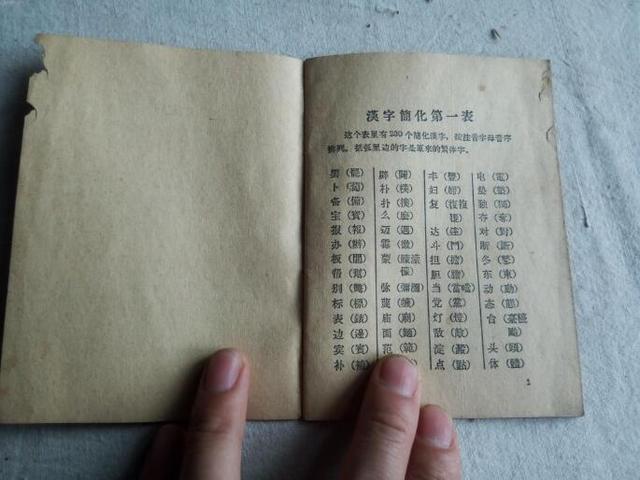 漢字簡化第一表
这个表里有230个簡化漢字，按注音字母音序
排列。括弧里边的字是原來的繁体字。
罢（罷）
卜（蔔）
备（備）
宝（寶）
报（報）
办（辦）
板（闆）
帮（幫）
别（彆）
标（標）
表（錶）
边（邊）
宾（賓）
补（補）
辟（闢）
朴（樸）
扑（撲）
么（麽）
迈（邁）
霉（黴）
蒙（矇濛
懞）
弥（彌瀰）
蔑（衊）
庙（廟）
面（麵）
范（範）
丰（豐）
妇（婦）
复（復複
覆）
达（達）
斗（鬥）
担（擔）
胆（膽）
当（當噹）
党（黨）
灯（燈）
敌（敵）
淀（澱）
点（點）
电（電）
垫（墊）
独（獨）
夺（奪）
对（對）
断（斷）
冬（鼕）
东（東）
动（動）
态（態）
台（臺檯
颱）
头（頭）
体（體）
1